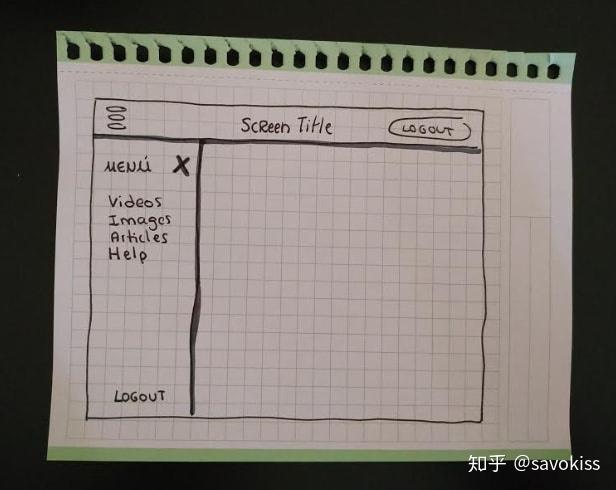 Screen Title
LOGOUT
MENÚ X
Videos
Images
Articles
Help
LOGOUT
知乎 @savokiss